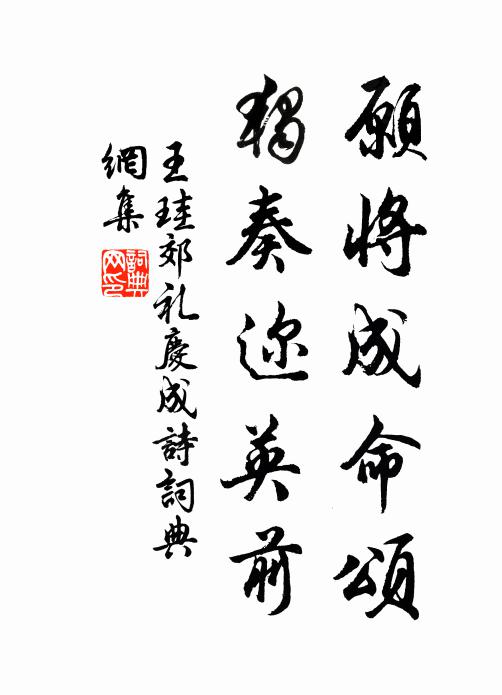 願將成命頌
獨奏迩英前
王珪郊礼慶成詩詞典
網集
詞典
网印